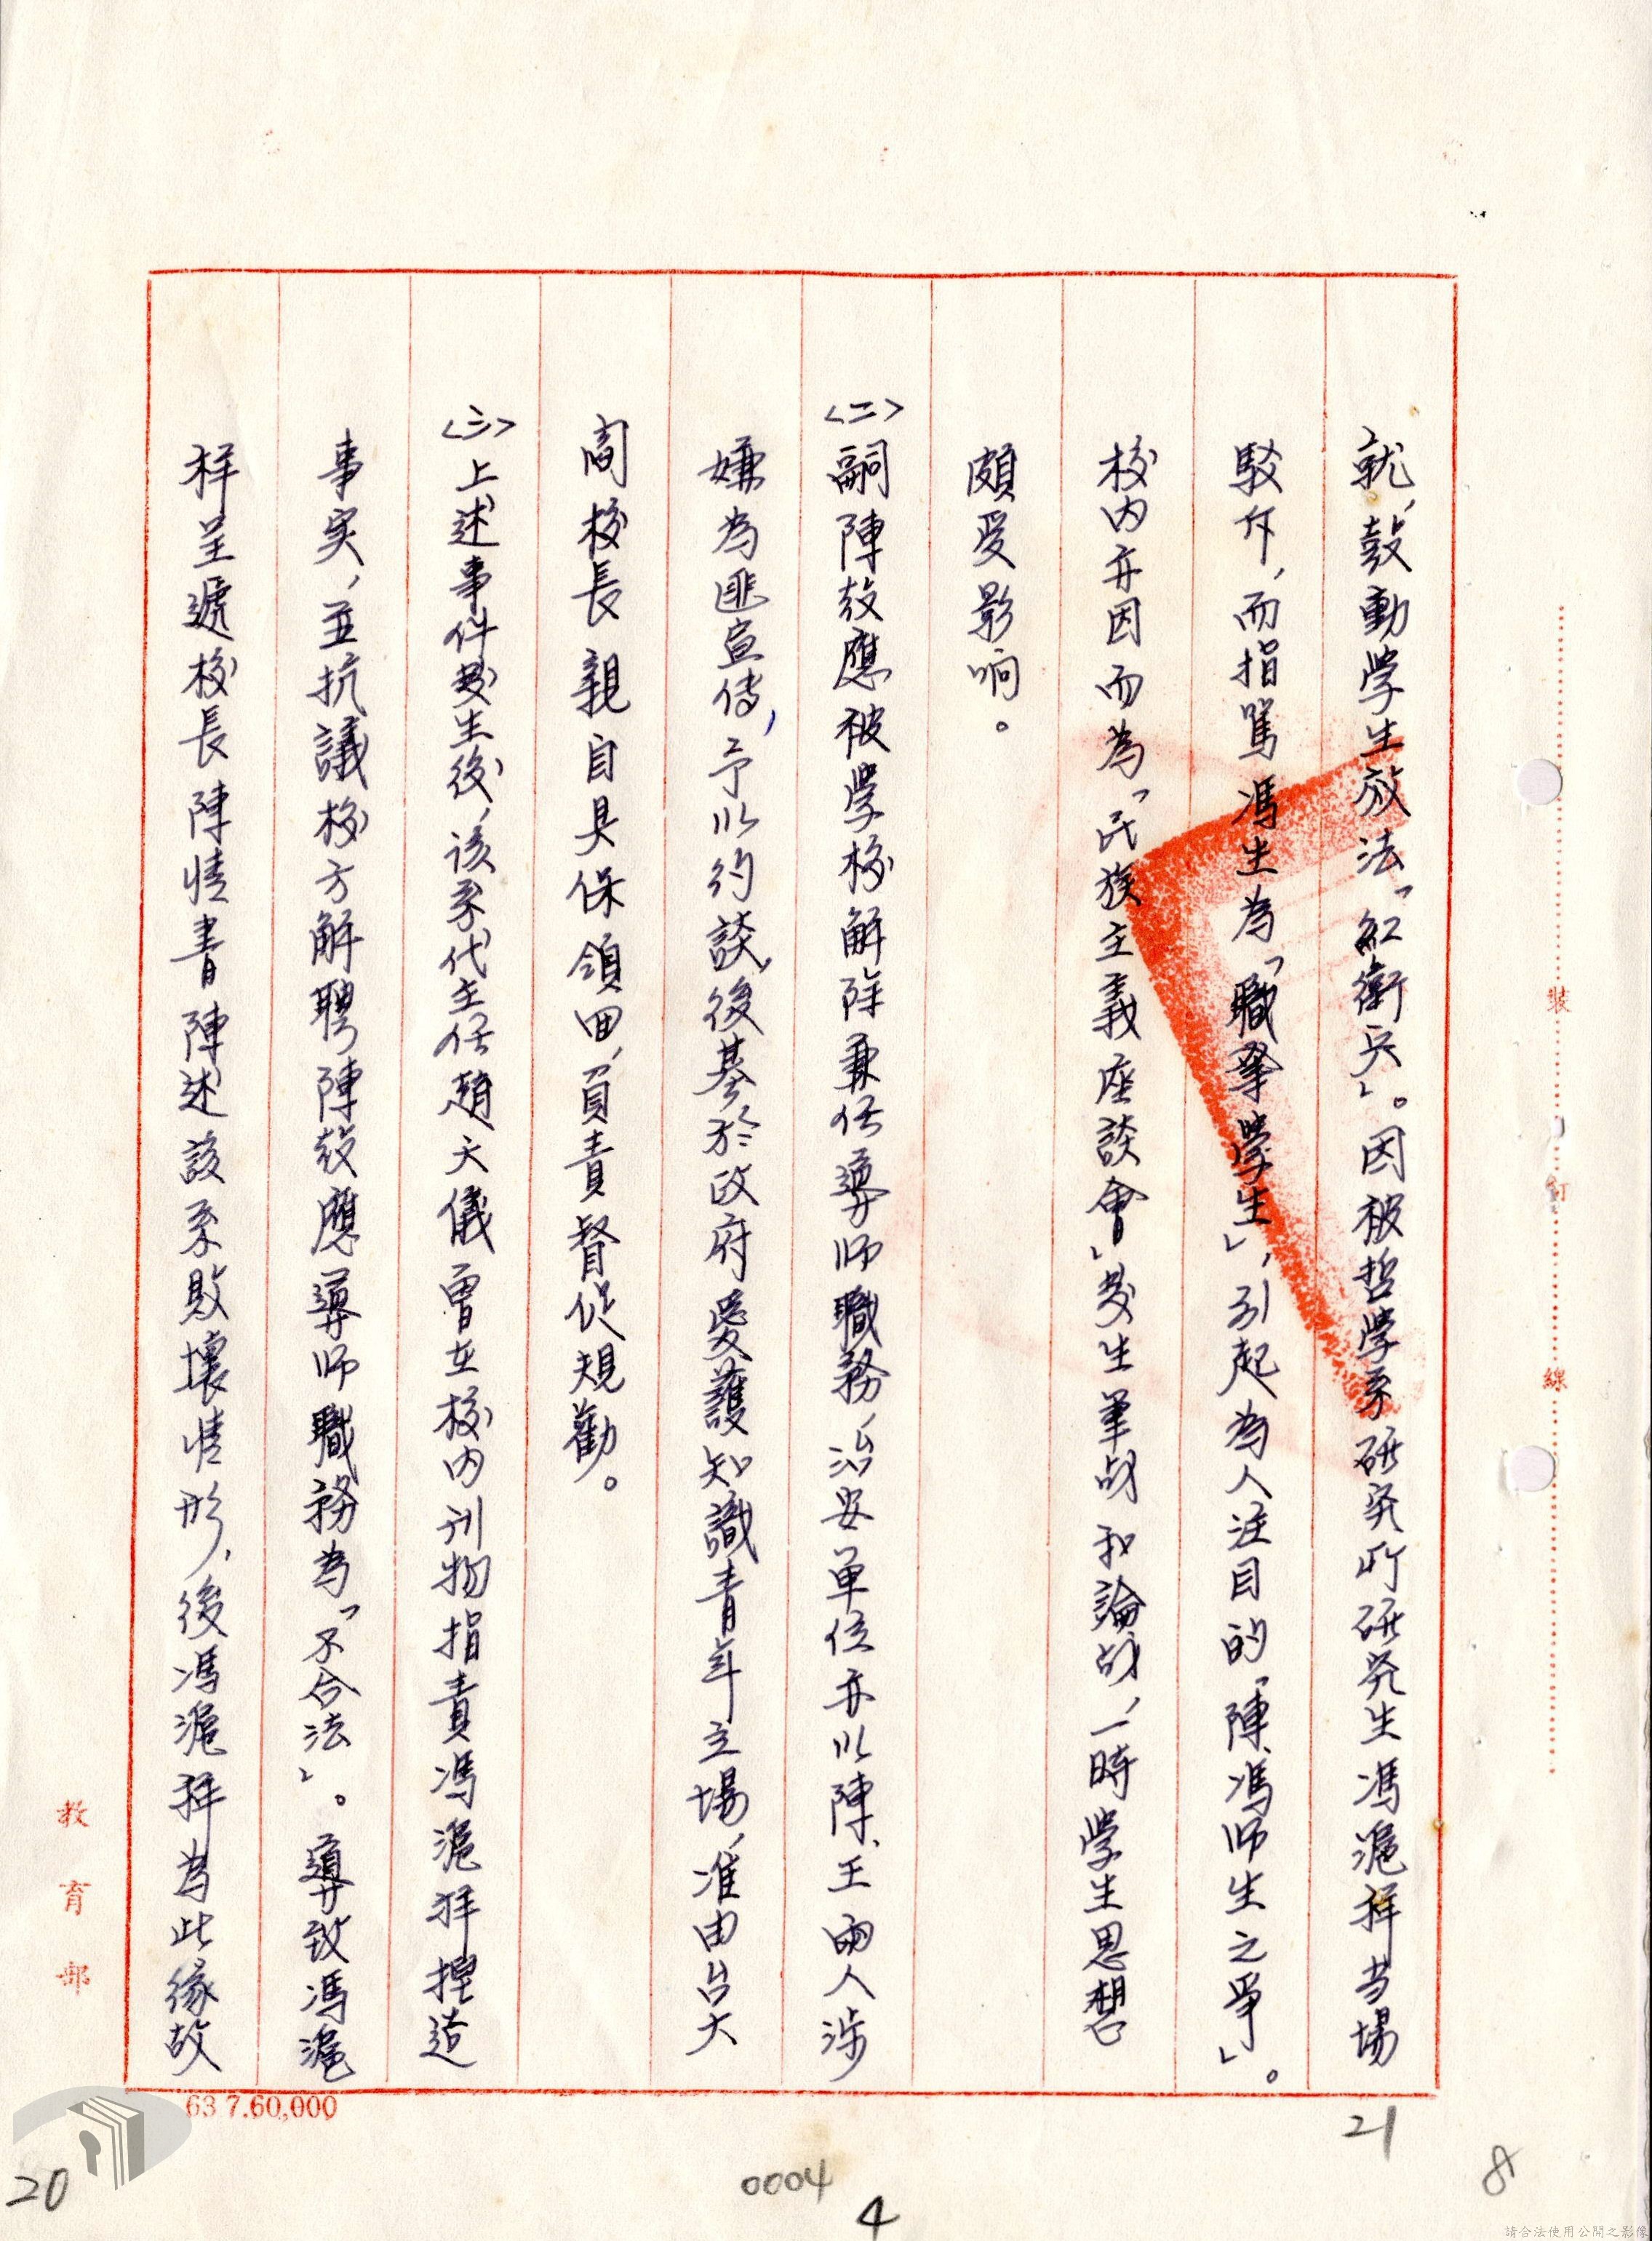 就，鼓動学生放法「紅衛兵」。因被哲学系研究所研究生馮滬祥当場
駁斥，而指罵馮生為「職業學生」，引起為人注目的「陳、馮师生之爭」。
校内亦因而為「民族主義座談會」发生筆战和論战，一時学生思想
頗受影响。
<二>嗣陳鼓應被学校解除兼任導师職務，治安单位亦以陳、王兩人涉
嫌為匪宣传，予以約談，後基於政府愛護知識青年立場，准由台大
閻校長親自具保領回，負責督促規勸。
<三>上述事件发生後，该系代主任趙天儀曾在校内刊物指責馮滬祥捏造
事実，並抗議校方解聘陳鼓應導师職務為「不合法」。導致馮滬
祥呈遞校長陳情書陳述該系敗壞情形，後馮滬祥為此緣故
裝
訂
線
教育部
63 7.60,000
21
20
0004
4
8
請合法使用公開之影像